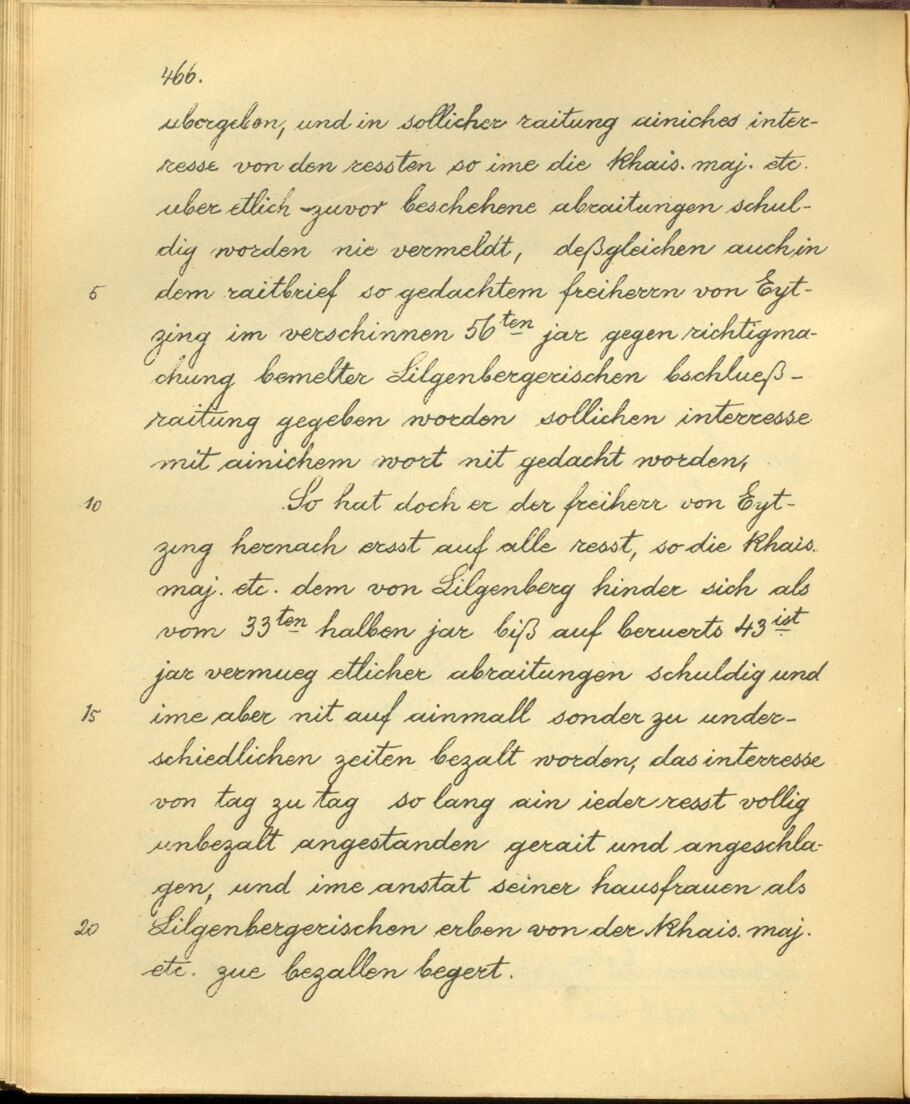 466.
ubergeben, und in sollicher raitung ainiches inter-
resse von den ressten so ime die Khais. maj. etc.
uber etlich zuvor beschehene abraitungen schul-
dig worden nie vermeldt, deßgleichen auch in
5 dem raitbrief so gedachtem freiherrn von Eyt-
zing im verschinnen 56ten jar gegen richtigma-
chung bemelter Lilgenbergerischen bschlueß-
raitung gegeben worden sollichen interresse
mit ainichem wort nit gedacht worden,
10 So hat doch er der freiherr von Eyt-
zing hernach ersst auf alle resst, so die Khais.
maj. etc. dem von Lilgenberg hinder sich als
vom 33ten halben jar biß auf beruerts 43ist
jar vermueg etlicher abraitungen schuldig und
15 ime aber nit auf ainmall sonder zu under-
schiedlichen zeiten bezalt worden, das interresse
von tag zu tag so lang ain ieder resst vollig
unbezalt angestanden gerait und angeschla-
gen, und ime anstat seiner hausfrauen als
20 Lilgenbergerischen erben von der Khais. maj.
etc. zue bezallen begert.